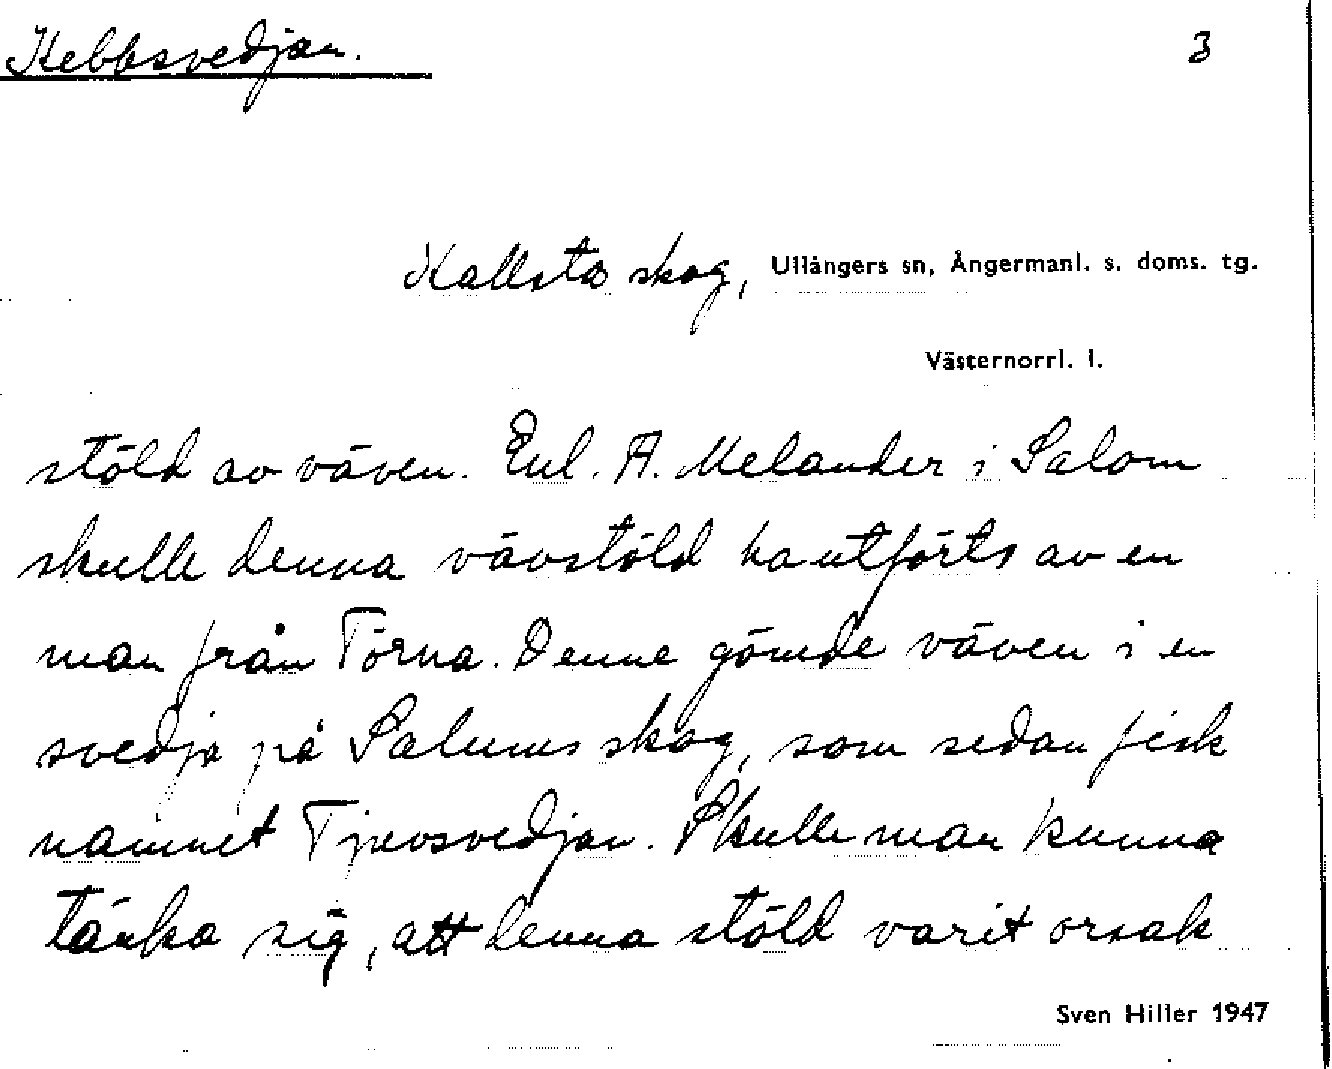 Kebbsvedjan. 3
Kallsta skog, Ullångers sn, Ångermanl. s. doms. tg.
Västernorrl. l.
stöld av väven. Enl. A. Melander i Salom
skulle denna vävstöld ha utförts av en
man från Törna. Denne gömde väven i en
svedja på Salums skog, som sedan fick
namnet Tjuvsvedjan. Skulle man kunna
tänka sig, att denna stöld varit orsak
Sven Hiller 1947